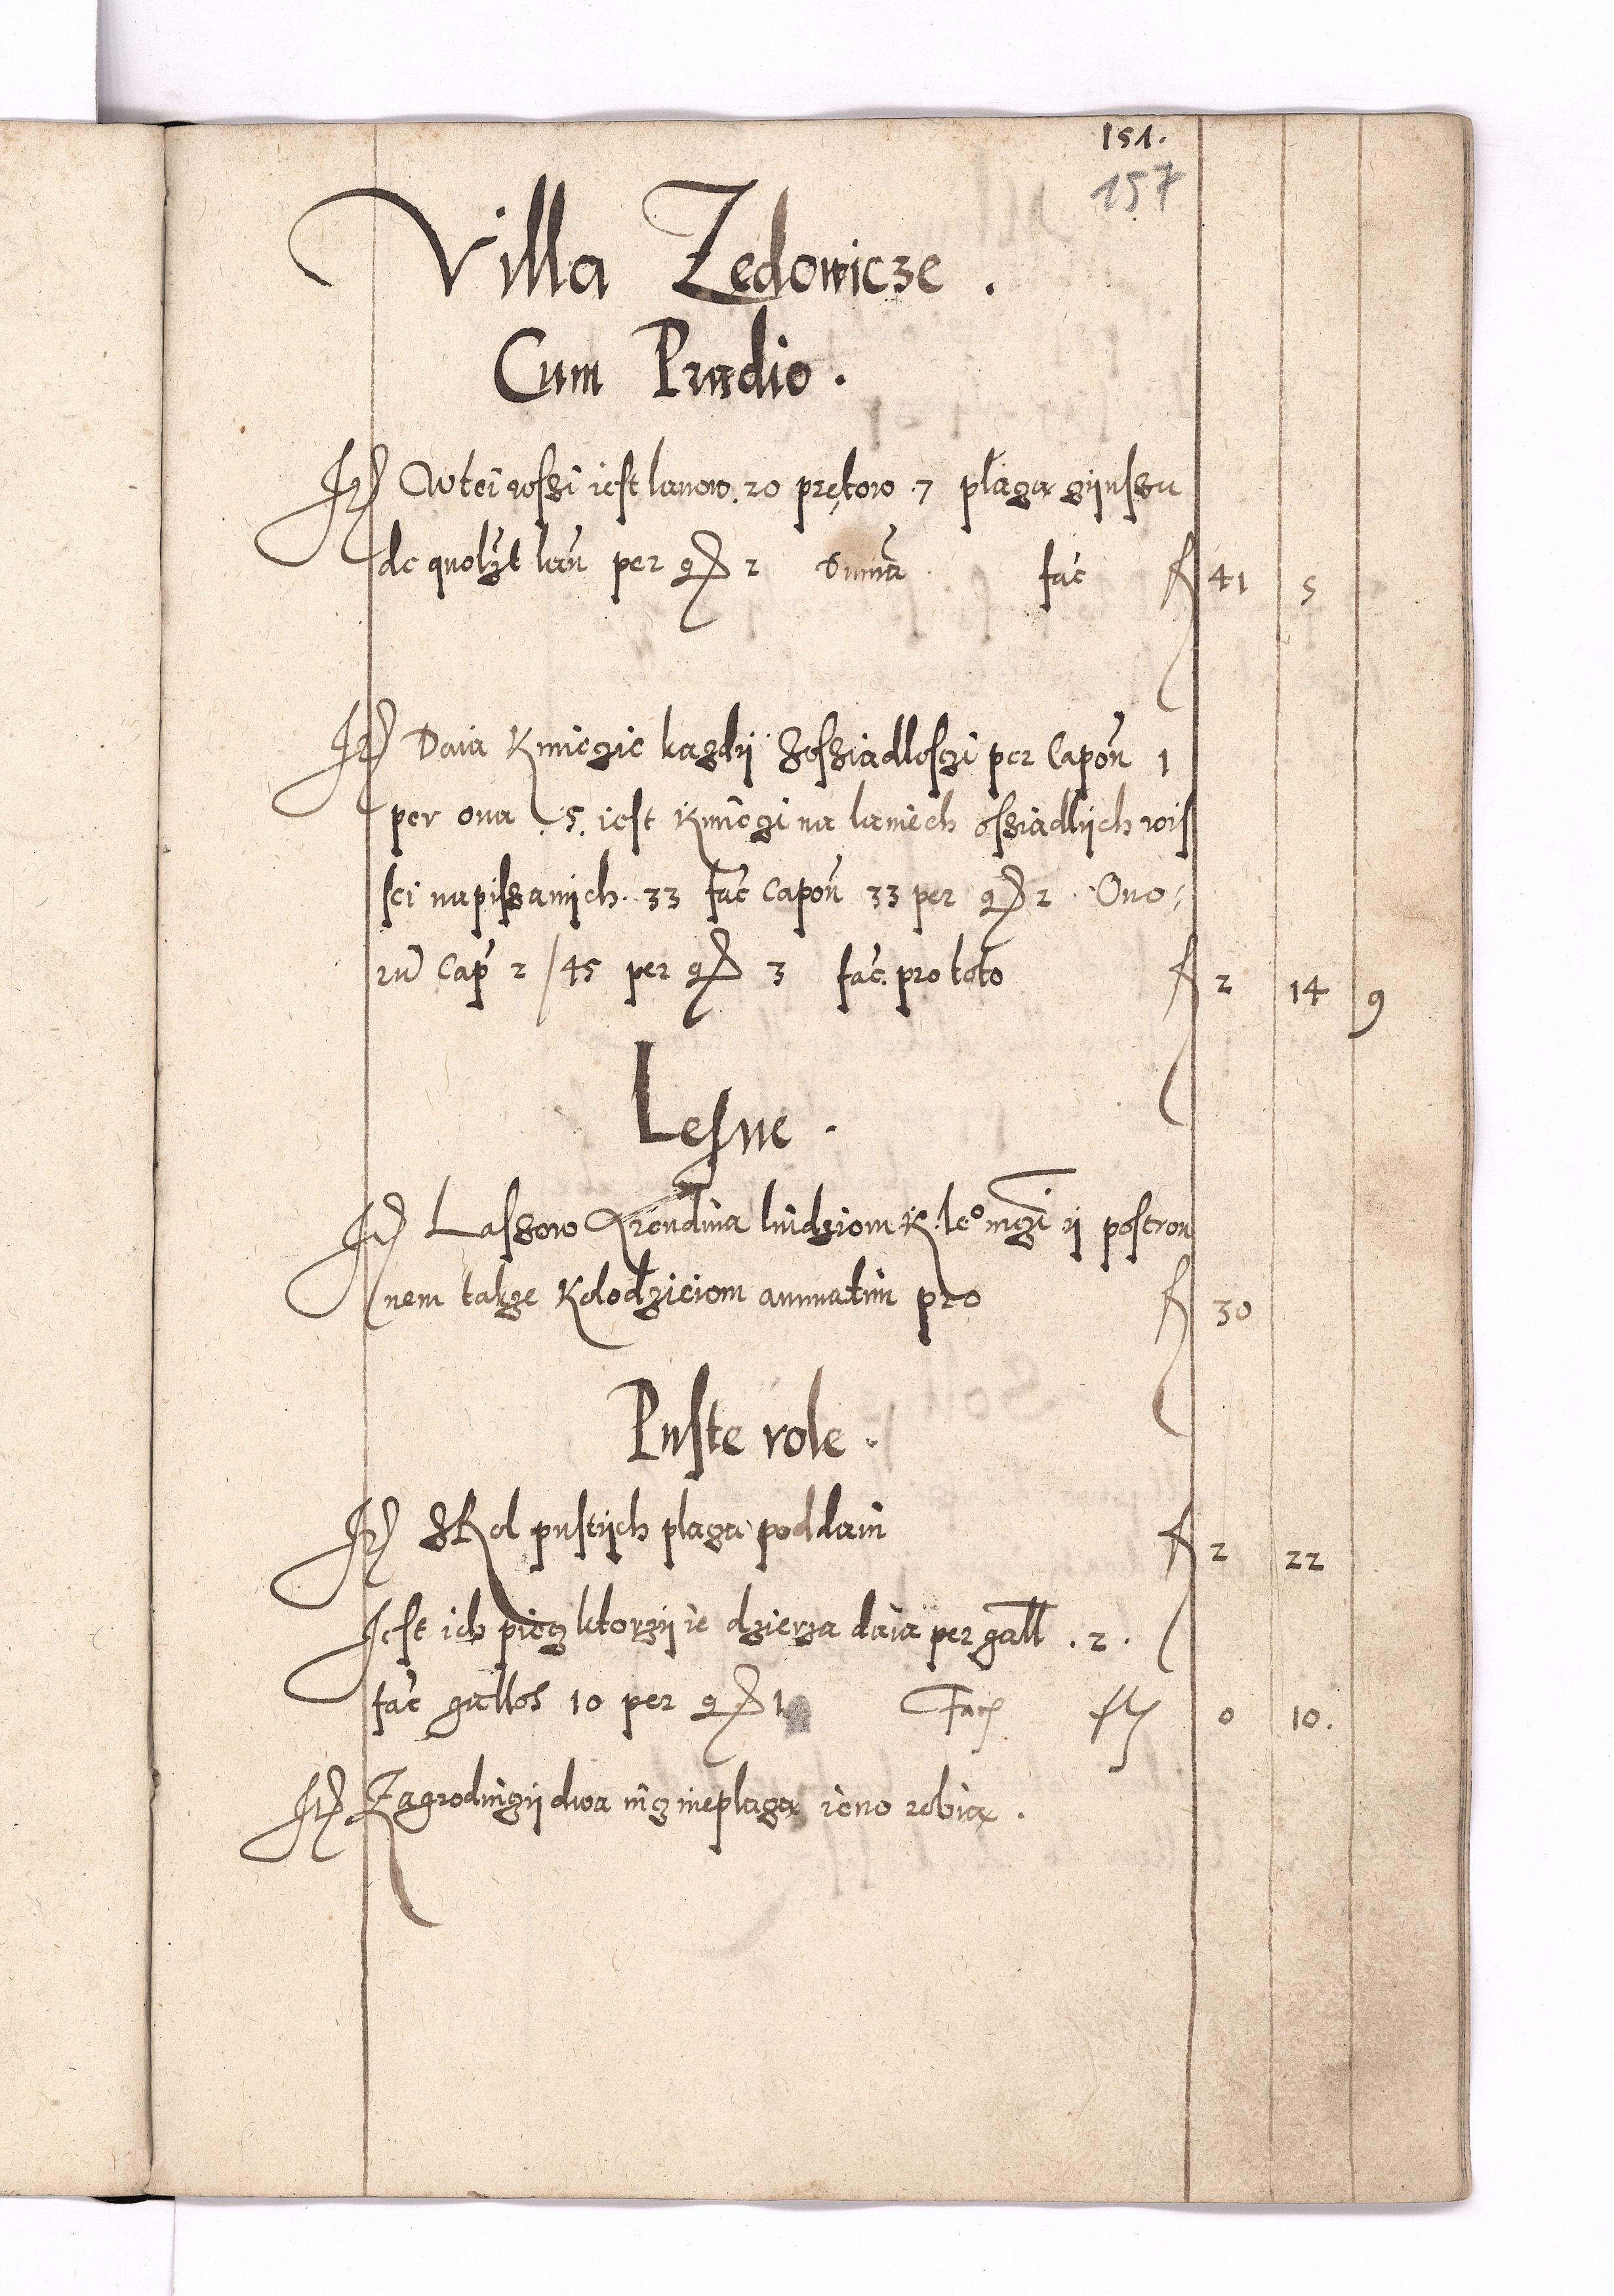 151.
157
Villa Zędowicze.
Cum Prædio.
Itẽ W tei wsszi iest lanow. 20 prętow 7 plaga czijnsszu
de quolȝt lan̄ per gᵱ 2 Summa. fac̄ fl 41 5
Itẽ Daia Kmieczie kazdij z ossziadlosczi per Capon̄ 1
per oua .5. iest Kmieczi na laniech ossziadlijch wis
sci napisszanijch. 33 fac̄ capon̄ 33 per gᵱ 2. Ouo-
rū Cap̄ 2 / 45 per gᵱ 3 fac̄. pro toto fl 2 14 9
Lesne.
Itẽ Lasszow Arendina liudziom K. le͏ͦmczi ij postron
nem takze Kolodzieiom annuatim pro fl 30
Puste role.
Itẽ z Rol pustijch plaga poddani fl 2 22
Iest ich piecz ktorzij ie dzierza daia per gall .2.
fac̄ gallos 10 per gᵱ 1 Facit fl 0 10.
Itẽ Zagrodniczij dwa nicz nieplaga ieno robia.